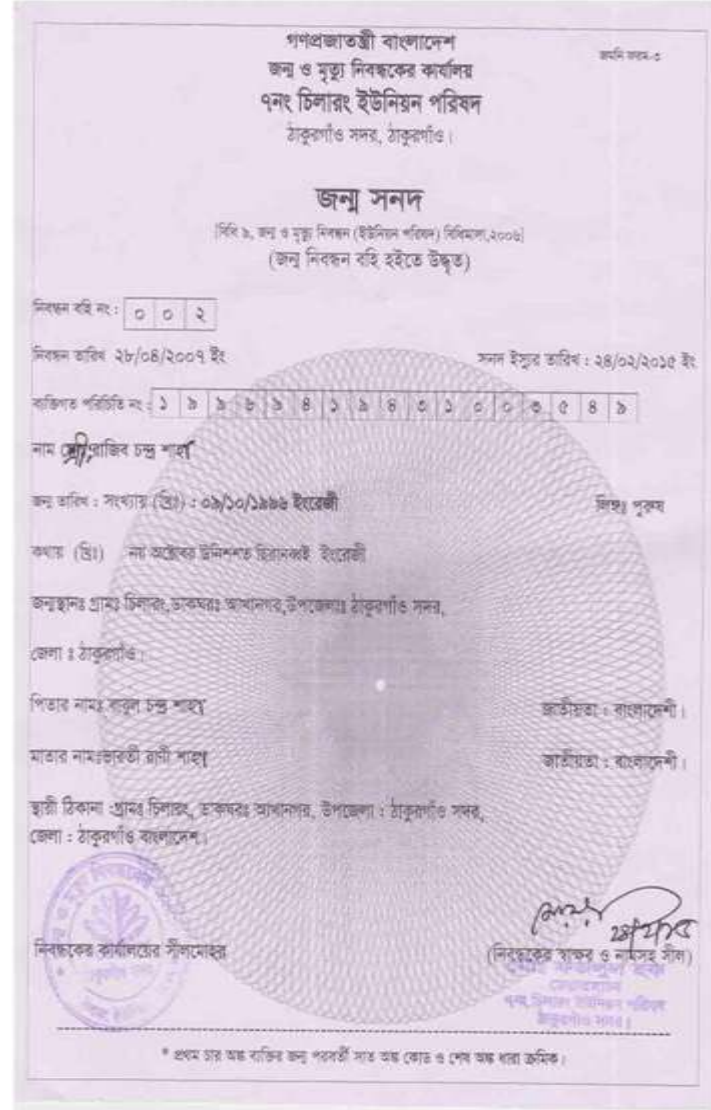 গণপ্রজাতন্ত্রী বাংলাদেশ
জন্ম ও মৃত্যু নিবন্ধকের কার্যালয়
জমনি ফরম-৩
৭নং চিলারং ইউনিয়ন পরিষদ
ঠাকুরগাঁও সদর, ঠাকুরগাঁও।
জন্ম সনদ
[বিধি ৯, জন্ম ও মৃত্যু নিবন্ধন (ইউনিয়ন পরিষদ) বিধিমালা,২০০৬]
(জন্ম নিবন্ধন বহি হইতে উদ্ধৃত)
নিবন্ধন বহি নং : ০ ০ ২
নিবন্ধন তারিখ ২৮/০৪/২০০৭ ইং সনদ ইস্যুর তারিখ : ২৪/০২/২০১৫ ইং
ব্যক্তিগত পরিচিতি নং : ১ ৯ ৯ ৬ ৯ ৪ ১ ৯ ৪ ৩ ১ ০ ০ ৩ ৫ ৪ ৯
নাম শ্রী রাজিব চন্দ্র শাহা
জন্ম তারিখ : সংখ্যায় (খ্রিঃ) : ০৯/১০/১৯৯৬ ইংরেজী লিঙ্গঃ পুরুষ
কথায় (খ্রিঃ) নয় অক্টোবর উনিশশত ছিয়ানব্বই ইংরেজী
জন্মস্থানঃ গ্রামঃ চিলারং,ডাকঘরঃ আখানগর,উপজেলাঃ ঠাকুরগাঁও সদর,
জেলা ঃ ঠাকুরগাঁও।
পিতার নামঃ বাবুল চন্দ্র শাহা জাতীয়তা : বাংলাদেশী।
মাতার নামঃভারতী রাণী শাহা জাতীয়তা : বাংলাদেশী।
স্থায়ী ঠিকানা :গ্রামঃ চিলারং, ডাকঘরঃ আখানগর, উপজেলা : ঠাকুরগাঁও সদর,
জেলা : ঠাকুরগাঁও বাংলাদেশ।
নিবন্ধকের কার্যালয়ের সীলমোহর
(নিবন্ধকের স্বাক্ষর ও নামসহ সীল)
চেয়ারম্যান
৭নং চিলারং ইউনিয়ন পরিষদ
ঠাকুরগাঁও সদর।
* প্রথম চার অঙ্ক ব্যক্তির জন্ম পরবর্তী সাত অঙ্ক কোড ও শেষ অঙ্ক ধারা ক্রমিক।